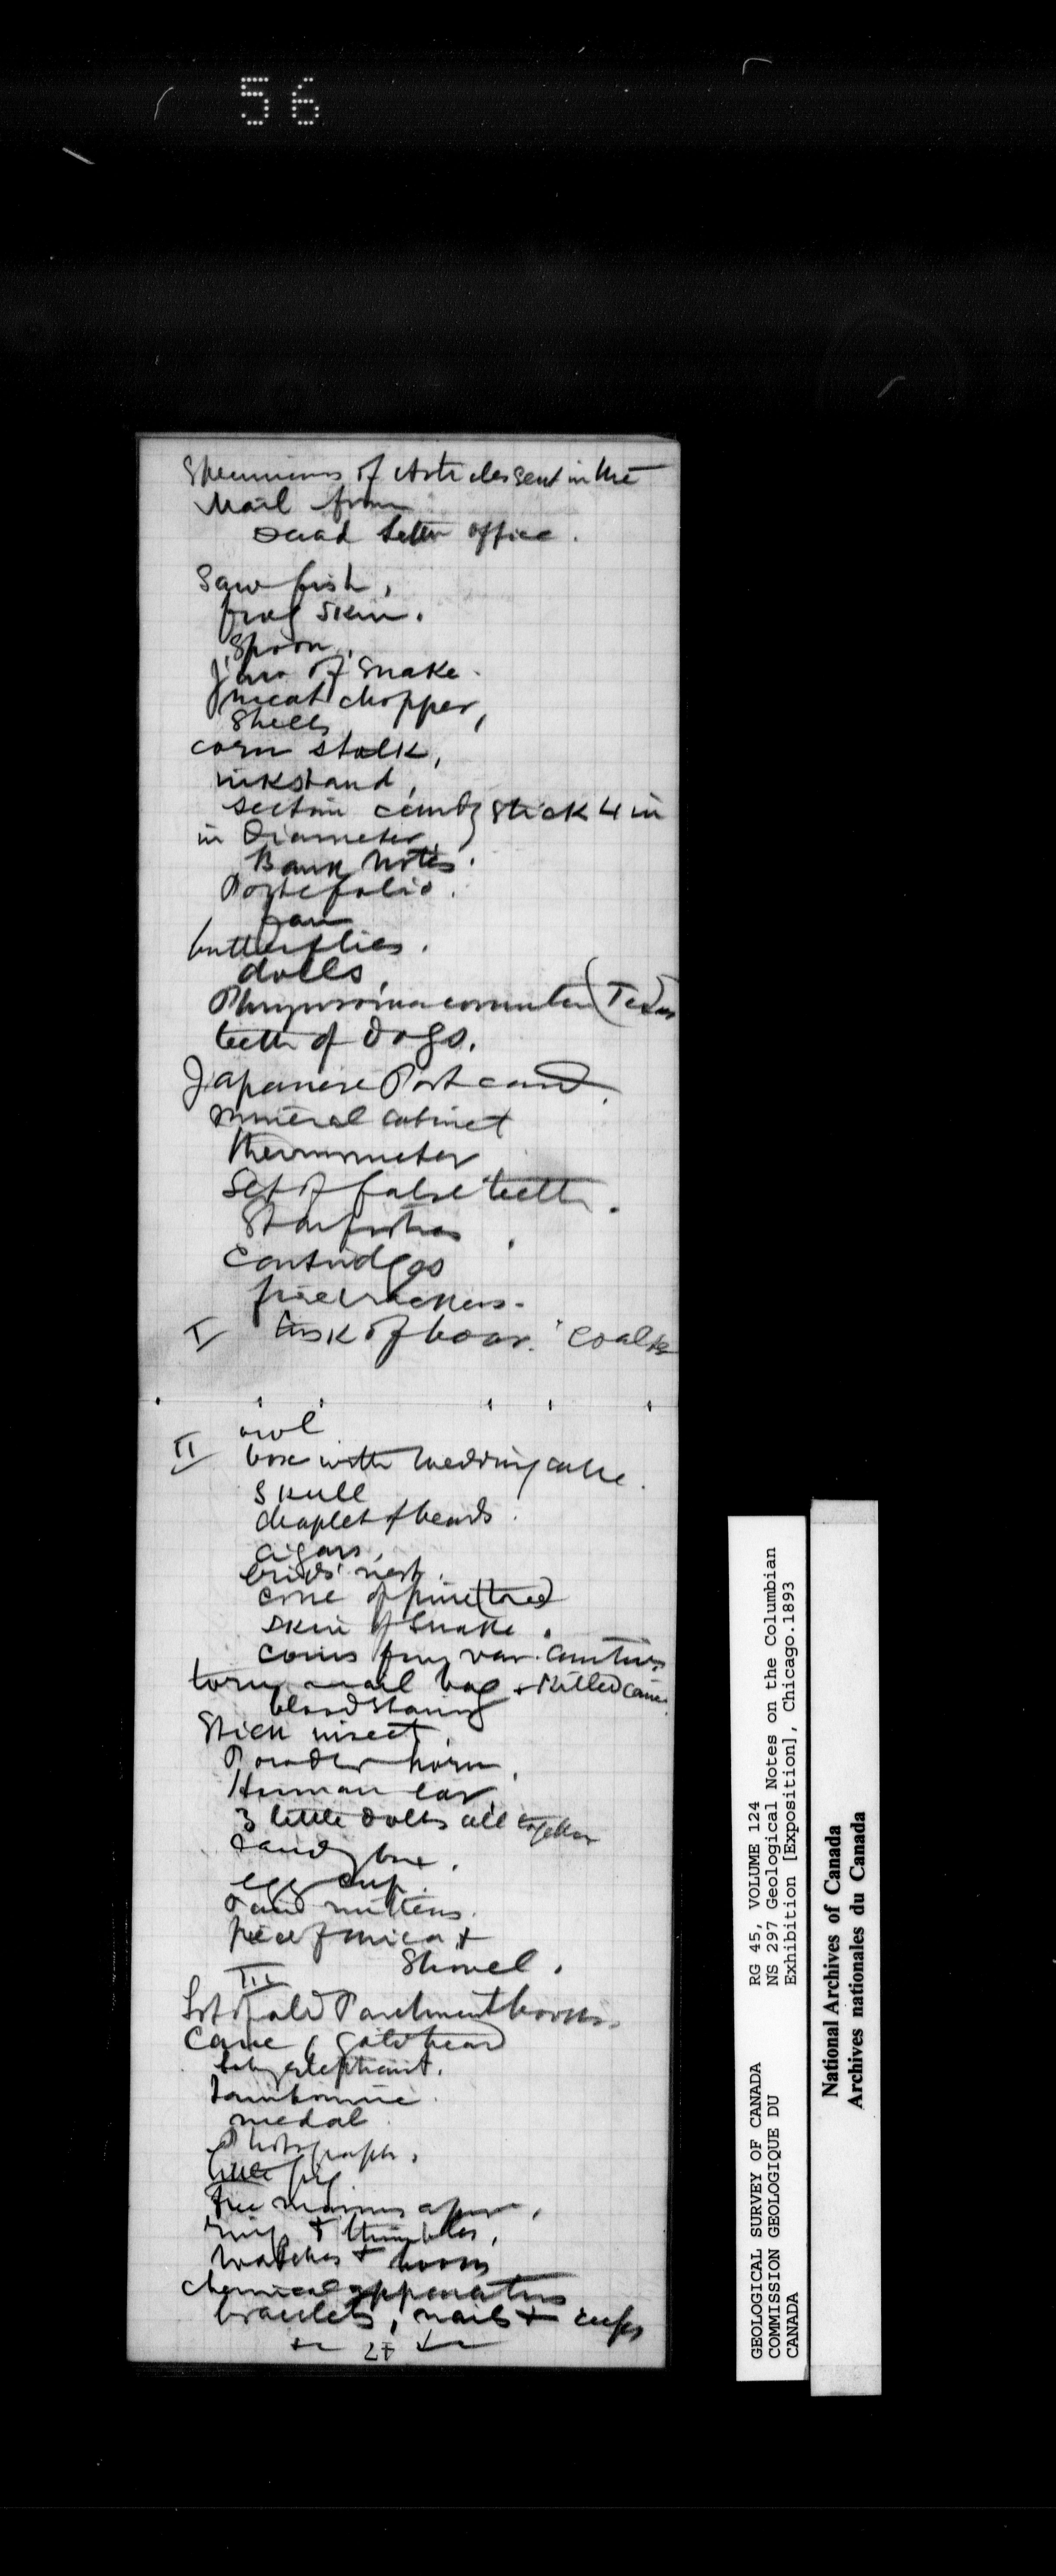 56
Specimens of Articles sent in the
Mail from
Dead Letter office.
Saw fish,
frog skin.
Spoon,
jaw of Snake.
meat chopper,
Shells
corn stalk,
inkstand,
section candy stick 4 in
in Diameter,
Bank Notes.
Portefolio.
fan
butterflies.
dolls,
Phrynosoma cornuta (Texas
teeth of Dogs.
Japanese Post card.
mineral cabinet
thermometer
Set of false teeth.
Starfishes,
Cartridges
firecrackers.
I tusk of boar. Coal
II owl
box with Wedding cake.
Skull
chaplet of beads.
cigars,
birds' nest.
cone of pine (tree)
skin of Snake.
coins from var. Countries
torn mail bag + killed
bloodstains
Stick insect,
Powder horn,
Human ear,
3 little Dolls all together
Candy box.
egg cup.
mittens.
piece of mica +
Shovel.
III
Lot of old Parchment books.
Cane, gold head
toy elephant.
Tambourine.
medal
Photograph.
little pig
free masons apron,
rings + thimbles,
Watches + books
chemical apparatus
bracelets, nails + cups
GEOLOGICAL SURVEY OF CANADA
COMMISSION GEOLOGIQUE DU
CANADA
RG 45, VOLUME 124
NS 297 Geological Notes on the Columbian
Exhibition [Exposition], Chicago.1893
National Archives of Canada
Archives nationales du Canada